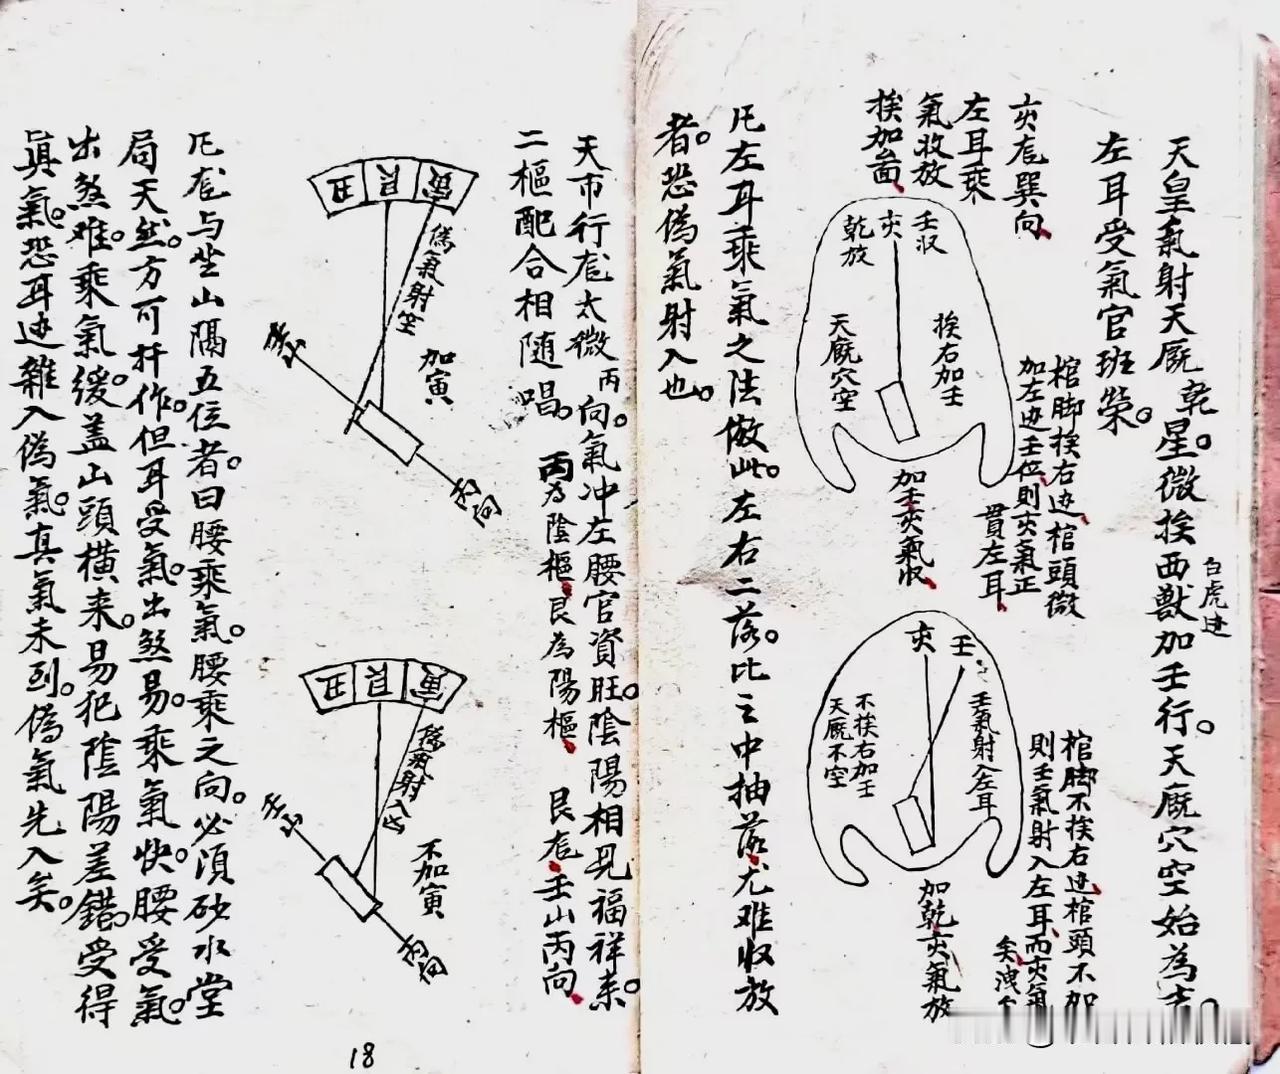 天皇氣射天厩乾星。微挨西獸加壬行。天厩穴空始為吉
白虎边
左耳受氣官班榮。
亥龙巽向
左耳乘
氣收放
挨加畐
壬収
亥
乾放
挨右加壬
天厩穴空
加壬亥氣収
棺脚挨右边棺頭微
加左边壬位則亥氣正
貫左耳
壬
亥
壬氣射入左耳
不挨右加壬
天厩不空
加乾亥氣放
棺脚不挨右边棺頭不加
則壬氣射入左耳而亥氣
矣洩
凡左耳乘氣之法倣此。左右二落。比之中抽落尤难收放
者。恐偽氣射入也。
天市行龙太微丙向。氣冲左腰官資旺。陰陽相見福祥来。
二樞配合相随唱。丙为陰樞艮為陽樞 艮龙壬山丙向
寅
艮
丑
偽氣射空
加寅
壬山
丙向
寅
艮
丑
偽氣射入凶
不加寅
壬山
丙向
凡龙与坐山隔五位者。曰腰乘氣。腰乘之向。必須砂水堂
局天然。方可扦作。但耳受氣。出煞易。乘氣快。腰受氣。
出煞难。乘氣緩。盖山頭橫来。易犯陰陽差錯。受得
眞氣。恐耳边雜入偽氣。真氣未到。偽氣先入矣。
18